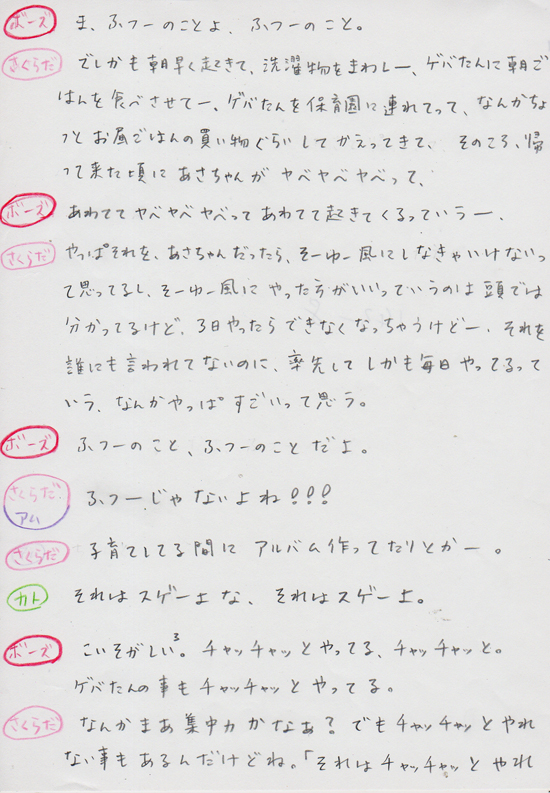 ボーズ ま、ふつーのことよ、ふつーのこと。
さくらだ でしかも朝早く起きて、洗濯物をまわしー、ゲバたんに朝ご
はんを食べさせてー、ゲバたんを保育園に連れてって、なんかちょ
っとお昼ごはんの買い物ぐらいしてかえってきて、そのころ、帰
って来た頃にあさちゃんがヤベヤベヤベって、
ボーズ あわててヤベヤベヤベってあわてて起きてくるっていうー、
さくらだ やっぱそれを、あさちゃんだったら、そーゆー風にしなきゃいけないっ
て思ってるし、そーゆー風にやった方がいいっていうのは頭では
分かってるけど、3日やったらできなくなっちゃうけどー、それを
誰にも言われてないのに、率先してしかも毎日やってるって
いう、なんかやっぱすごいって思う。
ボーズ ふつーのこと、ふつーのことだよ。
さくらだ アム ふつーじゃないよね!!!
さくらだ 子育てしてる間にアルバム作ってたりとかー。
カト それはスゲーよな、それはスゲーよ。
ボーズ こいそがしい3。チャッチャッとやってる、チャッチャッと。
ゲバたんの事もチャッチャッとやってる。
さくらだ なんかまあ集中力かなぁ?でもチャッチャッとやれ
ない事もあるんだけどね。「それはチャッチャッとやれ